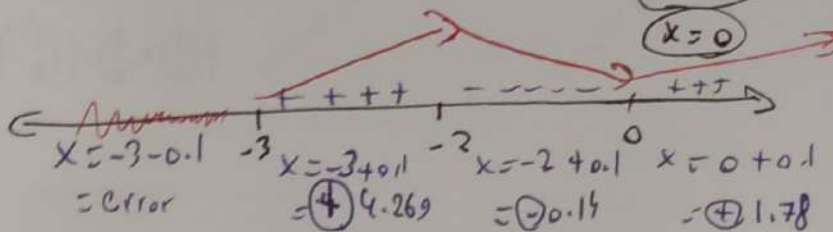 x = 0
+ + + + - - - - - + + +
-3 -2 0
x = -3 - 0.1 x = -3 + 0.1 x = -2 + 0.1 x = 0 + 0.1
= error = + 4.269 = - 0.14 = + 1.78